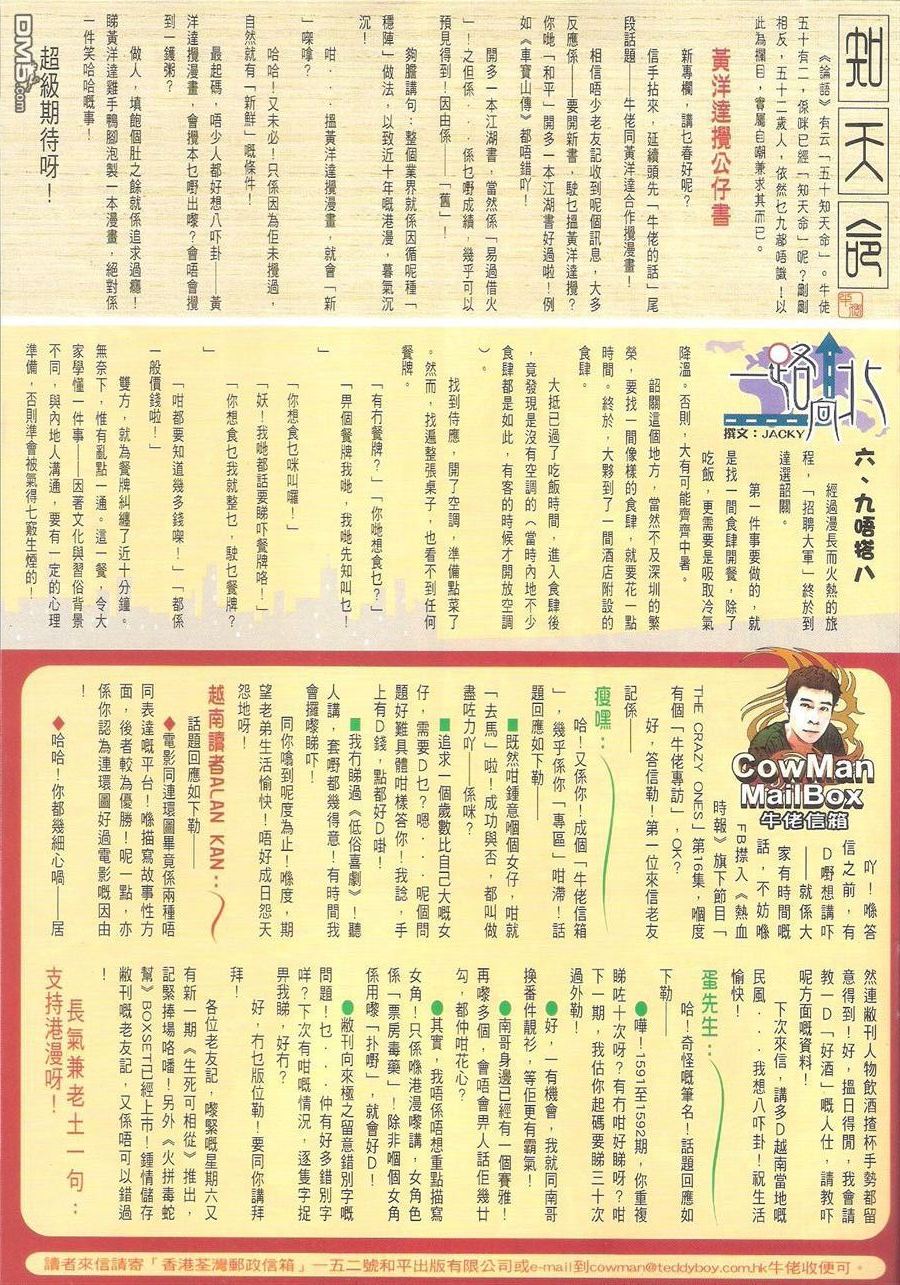 知天命
《論語》有云「五十知天命」。牛佬
五十有二，係咪已經「知天命」呢？剛剛
相反，五十二歲人，依然乜九都唔識！以
此為欄目，實屬自嘲兼求其而已。
黃洋達攪公仔書
新專欄，講乜春好呢？
信手拈來，延續頭先「牛佬的話」尾
段話題——牛佬同黃洋達合作攪漫畫！
相信唔少老友記收到呢個訊息，大多
反應係——要開新書，駛乜搵黃洋達攪？
你哋「和平」開多一本江湖書好過啦！例
如《車寶山傳》都唔錯吖！
開多一本江湖書，當然係「易過借火
」！之但係．．．係乜嘢成績，幾乎可以
預見得到！因由係——「舊」！
夠膽講句：整個業界就係因循呢種「
穩陣」做法，以致近十年嘅港漫，暮氣沉
沉！
咁．．．搵黃洋達攪漫畫，就會「新
」㗎嗱？
哈哈！又未必！只係因為佢未攪過，
自然就有「新鮮」嘅條件！
最起碼，唔少人都好想八吓卦——黃
洋達攪漫畫，會攪本乜嘢出嚟？會唔會攪
到一鑊粥？
做人，填飽個肚之餘就係追求過癮！
睇黃洋達雞手鴨腳泡製一本漫畫，絕對係
一件笑哈哈嘅事！
超級期待呀！
DM5.com
一路向北
撰文：JACKY
六、九唔搭八
經過漫長而火熱的旅
程，「招聘大軍」終於到
達選韶關。
第一件事要做的，就
是找一間食肆開餐，除了
吃飯，更需要是吸取冷氣
降溫。否則，大有可能齊齊中暑。
韶關這個地方，當然不及深圳的繁
榮，要找一間像樣的食肆，就要花一點
時間。終於，大夥到了一間酒店附設的
食肆。
大抵已過了吃飯時間，進入食肆後
，竟發現是沒有空調的（當時內地不少
食肆都是如此，有客的時候才開放空調
）。
找到侍應，開了空調，準備點菜了
。然而，找遍整張桌子，也看不到任何
餐牌。
「有冇餐牌？」「你哋想食乜？」
「畀個餐牌我哋，我哋先知叫乜！
」
「你想食乜咪叫囉！」
「妖！我哋都話要睇吓餐牌咯！」
「你想食乜我就整乜，駛乜餐牌？
」
「咁都要知道幾多錢㗎！」「都係
一般價錢啦！」
雙方，就為餐牌糾纏了近十分鐘。
無奈下，惟有亂點一通。這一餐，令大
家學懂一件事——因著文化與習俗背景
不同，與內地人溝通，要有一定的心理
準備，否則準會被氣得七竅生煙的！
CowMan
MailBox
牛佬信箱
吖！喺答
信之前，有
D嘢想講吓
——就係大
家有時間嘅
話，不妨喺
FB㩒入《熱血
時報》旗下節目「
THE CRAZY ONES」第16集，嗰度
有個「牛佬專訪」，OK？
好，答信勒！第一位來信老友
記係——
瘦嘿：
哈！又係你！成個「牛佬信箱
」，幾乎係你「專區」咁滯！話
題回應如下勒——
■既然咁鍾意嗰個女仔，咁就
「去馬」啦！成功與否，都叫做
盡咗力吖——係咪？
■追求一個歲數比自己大嘅女
仔，需要D乜？嗯．．．呢個問
題好難具體咁樣答你！我諗，手
上有D錢，點都好D啩！
■我冇睇過《低俗喜劇》！聽
人講，套嘢都幾得意！有時間我
會攞嚟睇吓！
同你噏到呢度為止！喺度，期
望老弟生活愉快！唔好成日怨天
怨地呀！
越南讀者ALAN KAN：
話題回應如下勒——
◆電影同連環圖畢竟係兩種唔
同表達嘅平台！喺描寫故事性方
面，後者較為優勝！呢一點，亦
係你認為連環圖好過電影嘅因由
！
◆哈哈！你都幾細心喎——居
然連敝刊人物飲酒揸杯手勢都留
意得到！好，搵日得閒，我會請
教一D「好酒」嘅人仕，請教吓
呢方面嘅資料！
下次來信，講多D越南當地嘅
民風．．．我想八吓卦！祝生活
愉快！
蛋先生：
哈！奇怪嘅筆名！話題回應如
下勒——
●嘩！1591至1592期，你重複
睇咗十次呀？有冇咁好睇呀？咁
下一期，我估你起碼要睇三十次
過外勒！
●好，一有機會，我就同南哥
換番件靚衫，等佢更有霸氣！
●南哥身邊已經有一個賽雅！
再嚟多個，會唔會畀人話佢幾廿
勾，都仲咁花心？
●其實，我唔係唔想重點描寫
女角！只係喺港漫嚟講，女角色
係「票房毒藥」！除非嗰個女角
係用嚟「扑嘢」，就會好D！
●敝刊向來極之留意錯別字嘅
問題！乜．．．仲有好多錯別字
咩？下次有咁嘅情況，逐隻字捉
畀我睇，好冇？
好，冇乜版位勒！要同你講拜
拜！
各位老友記，嚟緊嘅星期六又
有新一期《生死可相從》推出，
記緊捧場咯噃！另外《火拼毒蛇
幫》BOXSET已經上市！鍾情儲存
敝刊嘅老友記，又係唔可以錯過
！
長氣兼老土一句：
支持港漫呀！
讀者來信請寄「香港荃灣郵政信箱」一五二號和平出版有限公司或e-mail到cowman@teddyboy.com.hk牛佬收便可。